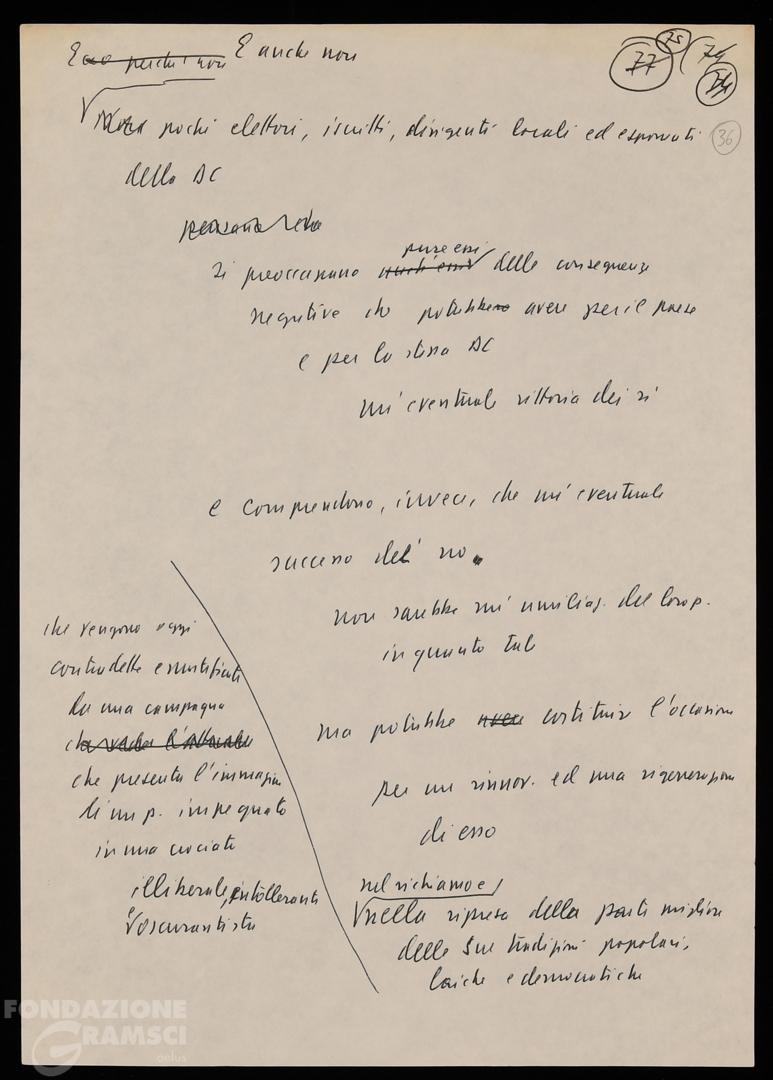 Ecco perché non E anche non
77 75 74 74
pochi elettori, iscritti, dirigenti locali ed esponenti 36
della DC
si preoccupano anch'essi pure essi delle conseguenze
negative che potrebbero avere per il paese
e per la stessa DC
un'eventuale vittoria dei sì
e comprendono, invece, che un'eventuale
successo dei no.
non sarebbe un'umiliaz. del loro p.
in quanto tale
ma potrebbe avere costituire l'occasione
per un rinnov. ed una rigenerazione
di esso
nel richiamo e
nella ripresa della parte migliore
delle sue tradizioni popolari,
laiche e democratiche
che vengono oggi
contraddette e mortificate
da una campagna
che presenta l'immagine
di un p. impegnato
in una crociata
illiberale, intollerante
e oscurantista
FONDAZIONE
GRAMSCI
aelus